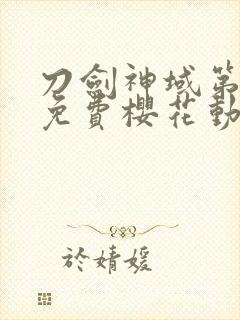 刀劍神域第
免費櫻花動
於婧媛